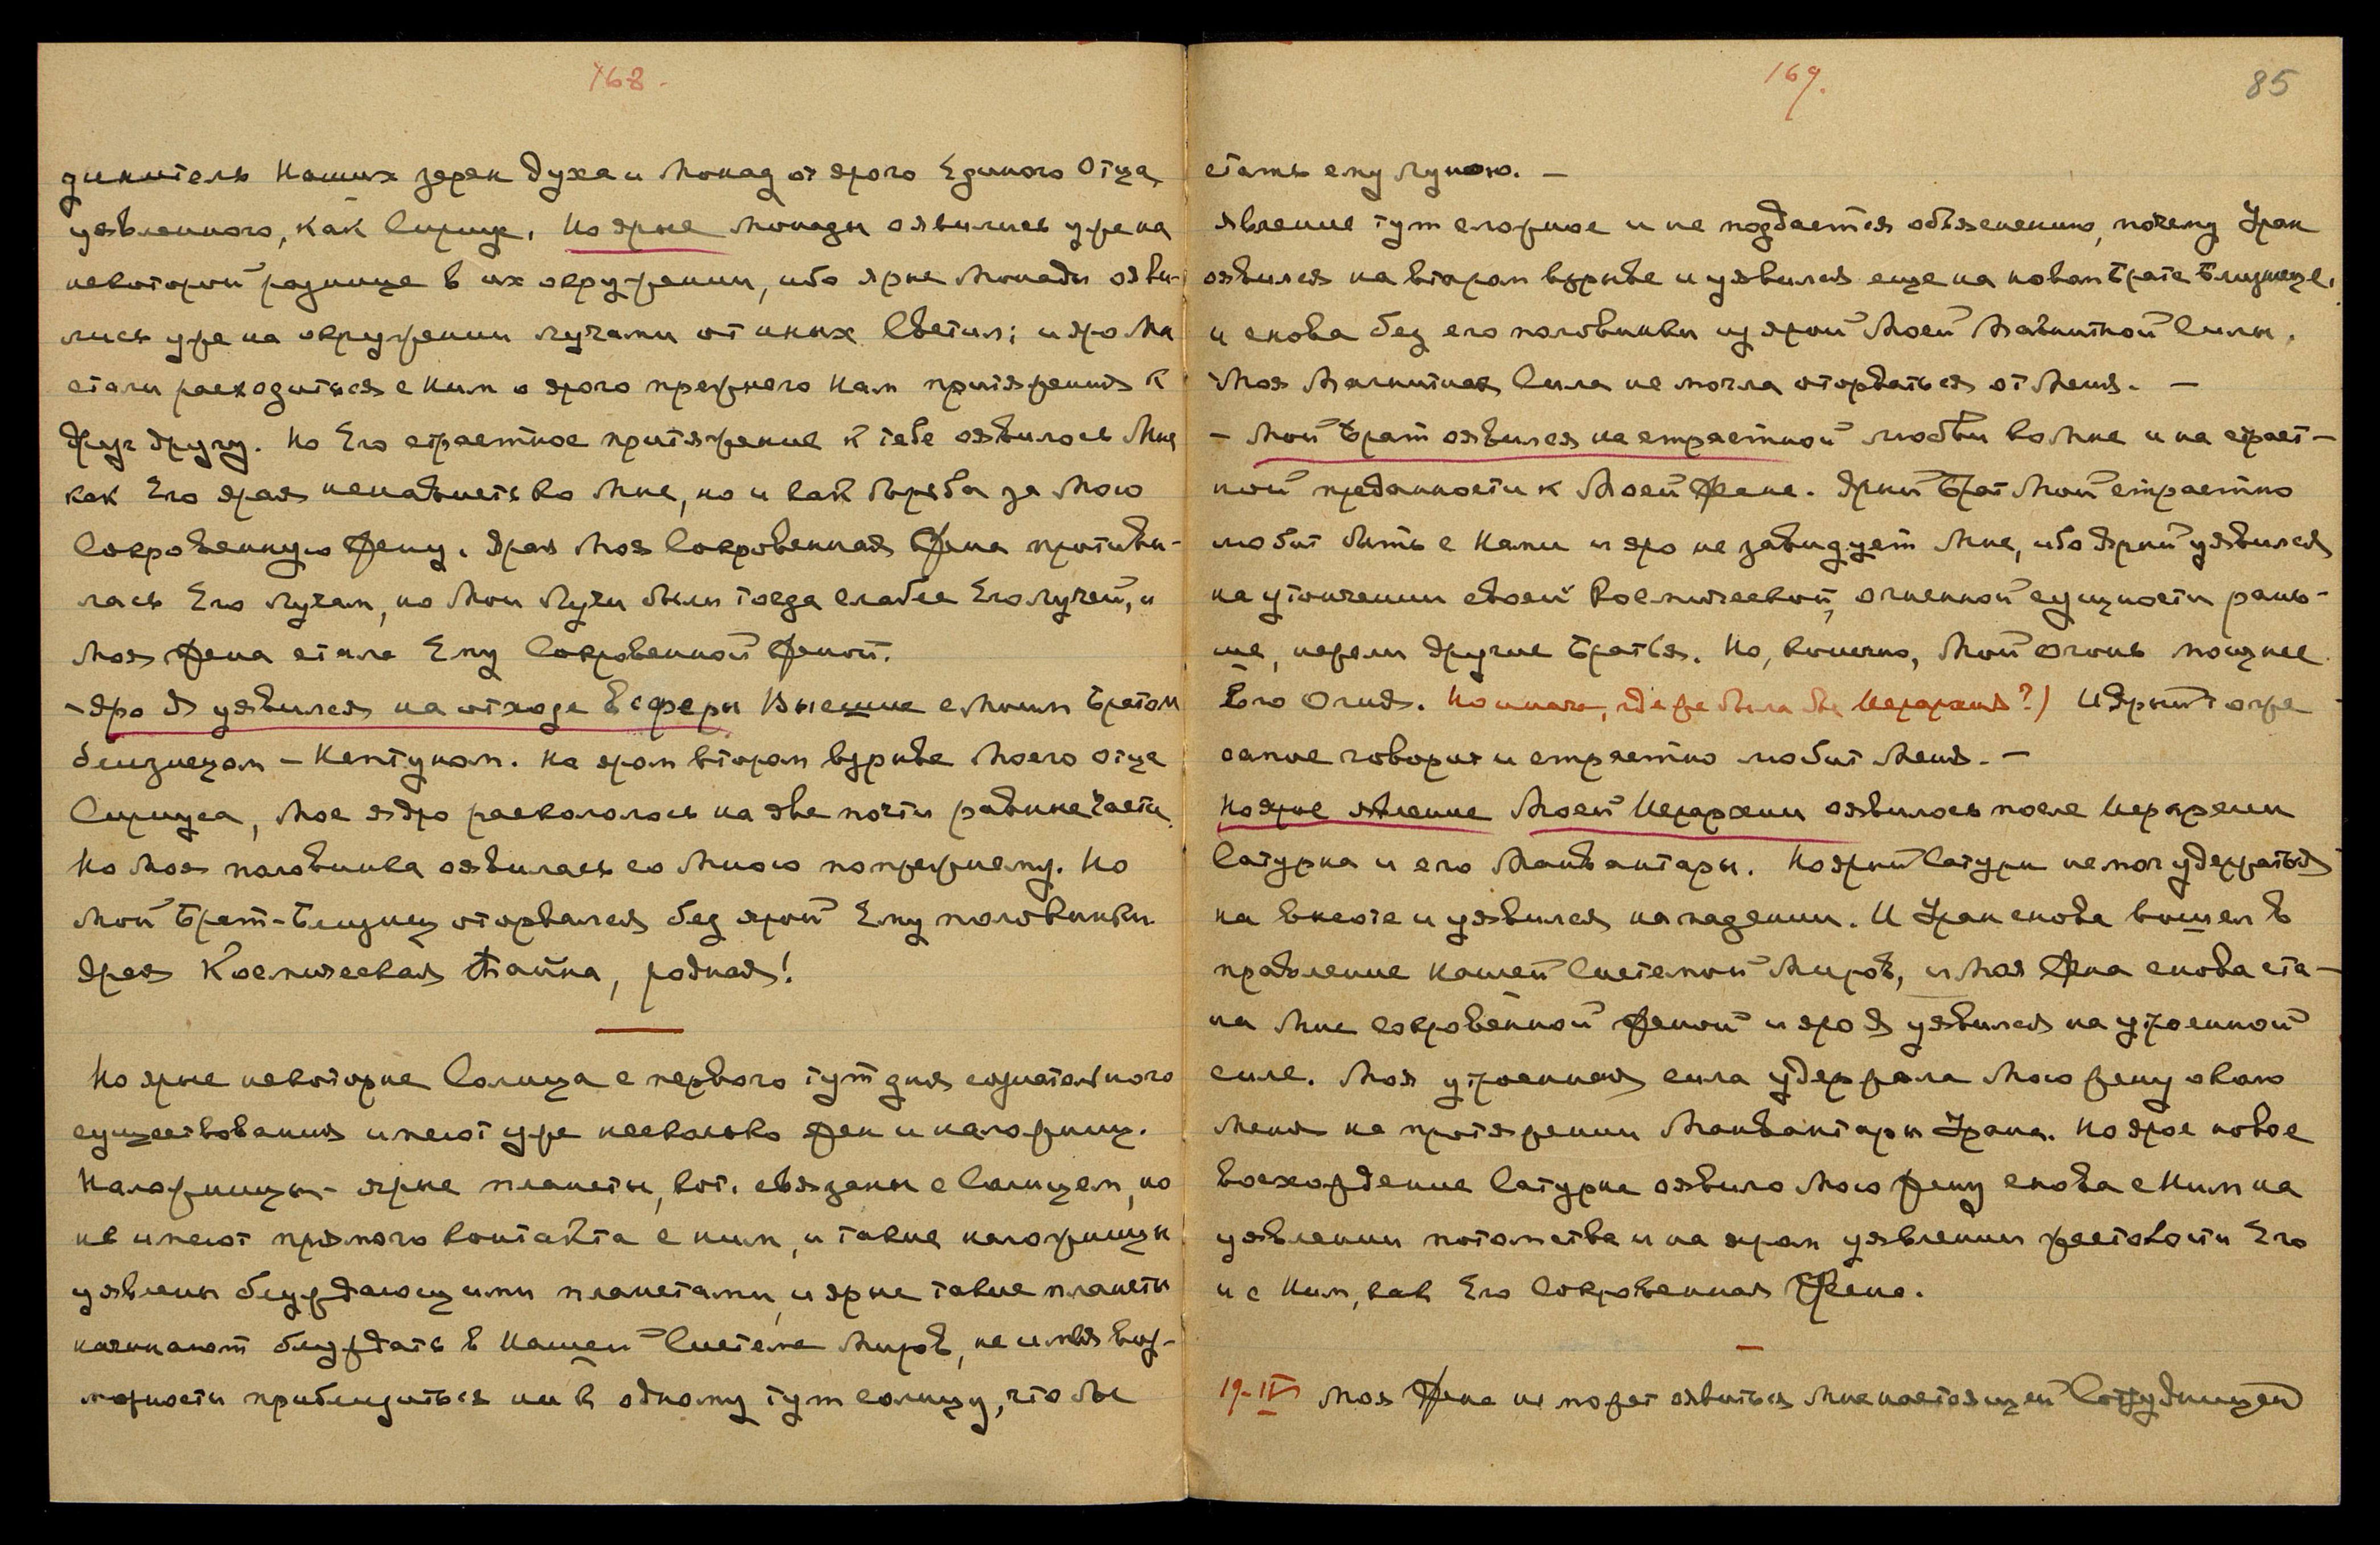 168.
динитель Наших зерен Духа и Монад от ярого Единого Отца,
уявленного, как Сириус. Но ярые Монады оявились уже на
некоторой разнице в их окружении, ибо ярые Монады ояви-
лись уже на окружении лучами от иных Светил; и яро Мы
стали расходиться с Ним и ярого прежнего Нам притяжения к
друг другу. Но Его страстное притяжение к тебе оявилось Мне
как Его ярая ненависть ко Мне, но и как борьба за Мою
Сокровенную Жену. Ярая Моя Сокровенная Жена противи-
лась Его Лучам, но Мои Лучи были тогда слабее Его лучей, и
Моя Жена стала Ему Сокровенной Женой.
- Яро Я уявился на отходе в сферы Высшие с Моим Братом
близнецом – Нептуном. На яром втором взрыве Моего Отца
Сириуса, Мое ядро раскололось на две почти равные части.
Но Моя половинка оявилась со Мною попрежнему. Но
Мой Брат-Близнец оторвался без ярой Ему половинки.
Ярая Космическая Тайна, родная!
Но ярые некоторые Солнца с первого тут дня сознательного
существования имеют уже несколько жен и наложниц.
Наложницы – ярые планеты, кот. связаны с Солнцем, но
не имеют прямого контакта с ним, и такие наложницы
уявлены блуждающими планетами, и ярые такие планеты
начинают блуждать в Нашей Системе Миров, не имея воз-
можности приблизиться ни к одному тут солнцу, что бы
169.
85
стать ему Луною. –
Явление тут сложное и не поддается объяснению, почему Уран
оявился на втором взрыве и уявился еще на новом Брате Близнеце,
и снова без его половинки из ярой Моей Магнитной Силы.
Моя Магнитная Сила не могла оторваться от Меня. –
– Мой Брат оявился на страстной любви ко Мне и на страст-
ной преданности к Моей Жене. Ярый Брат Мой страстно
любит быть с Нами и яро не завидует Мне, ибо Ярый уявился
на утончении своей Космической, огненной сущности рань-
ше, нежели другие Братья. Но, конечно, Мой огонь мощнее
Его Огня. Но иначе, где же была бы Иерархия?) И Ярый тоже
самое говорит и страстно любит Меня. –
Но ярое явление Моей Иерархии оявилось после Иерархии
Сатурна и его Манвантары. Но ярый Сатурн не мог удержаться
на высоте и уявился на падении. И Уран снова вошел в
правление Нашей Системой Миров, и Моя Жена снова ста-
ла Мне сокровенной Женой и яро Я уявился на утроенной
силе. Моя утроенная сила удержала Мою жену около
Меня на протяжении Манвантары Урана. Но ярое новое
восхождение Сатурна оявило Мою Жену снова с Ним на
уявлении потомства и на яром уявлении жестокости Его
и с Ним, как Его Сокровенная Жена.
19-IV Моя Жена не может оявиться Мне настоящей Сотрудницей